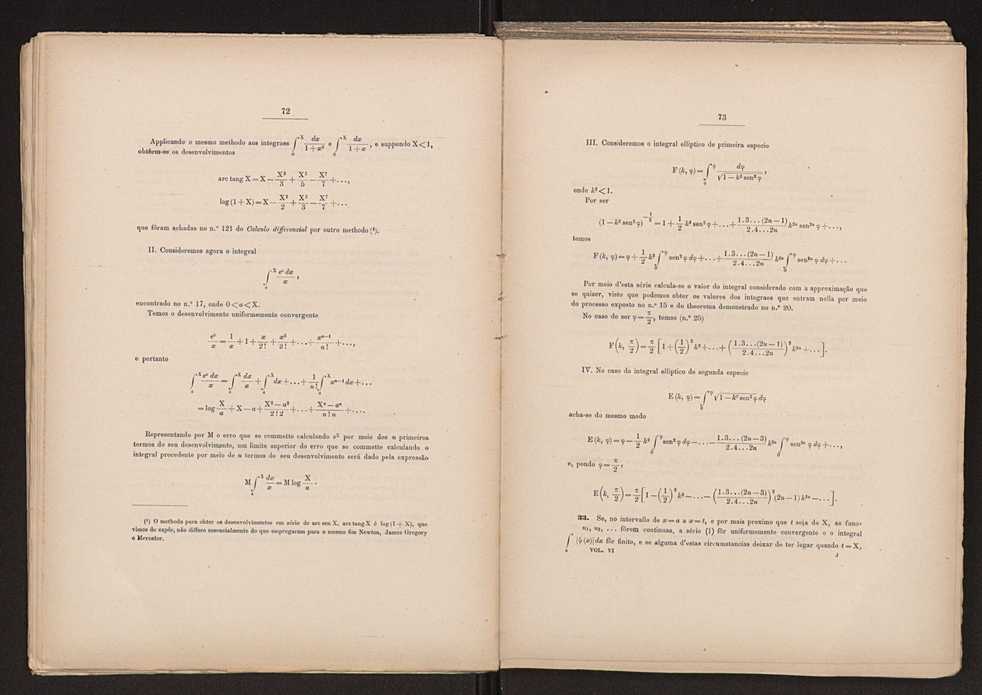 72
Applicando o mesmo methodo aos integraes ∫₀^X dx/(1+x²) e ∫₀^X dx/(1+x), e suppondo X<1,
obtêem-se os desenvolvimentos
arc tang X = X − X³/3 + X⁵/5 − X⁷/7 + ...,
log (1 + X) = X − X²/2 + X³/3 − X⁴/7 + ...
que fôram achadas no n.º 121 do Calculo differencial por outro methodo (¹).
II. Consideremos agora o integral
∫ₐ^X eˣ dx/x,
encontrado no n.º 17, onde 0<a<X.
Temos o desenvolvimento uniformemente convergente
eˣ/x = 1/x + 1 + x/2! + x²/2! + ... + xⁿ⁻¹/n! + ...,
e portanto
∫ₐ^X eˣ dx/x = ∫ₐ^X dx/x + ∫ₐ^X dx + ... + 1/n! ∫ₐ^X xⁿ⁻¹ dx + ...
= log X/a + X − a + (X² − a²)/(2!2) + ... + (Xⁿ − aⁿ)/(n!n) + ....
Representando por M o erro que se commette calculando eˣ por meio dos n primeiros
termos de seu desenvolvimento, um limite superior do erro que se commette calculando o
integral precedente por meio de n termos de seu desenvolvimento será dado pela expressão
M ∫ₐ^X dx/x = M log X/a.
(¹) O methodo para obter os desenvolvimentos em série de arc sen X, arc tang X é log (1 + X), que
vimos de expôr, não differe essencialmente do que empregaram para o mesmo fim Newton, James Gregory
e Mercator.
73
III. Consideremos o integral elliptico de primeira especie
F (k, φ) = ∫₀^φ dφ/√(1 − k² sen² φ),
onde k² < 1.
Por ser
(1 − k² sen² φ)^(−1/2) = 1 + 1/2 k² sen² φ + ... + (1.3...(2n − 1))/(2.4...2n) k²ⁿ sen²ⁿ φ + ...,
temos
F (k, φ) = φ + 1/2 k² ∫₀^φ sen² φ dφ + ... + (1.3...(2n − 1))/(2.4...2n) k²ⁿ ∫₀^φ sen²ⁿ φ dφ + ...
Por meio d'esta série calcula-se o valor do integral considerado com a approximação que
se quizer, visto que podemos obter os valores dos integraes que entram nella por meio
do processo exposto no n.º 15 e do theorema demonstrado no n.º 20.
No caso de ser φ = π/2, temos (n.º 25)
F(k, π/2) = π/2 [1 + (1/2)² k² + ... + (1.3...(2n − 1)/2.4...2n)² k²ⁿ + ...].
IV. No caso do integral elliptico de segunda especie
E (k, φ) = ∫₀^φ √(1 − k² sen² φ) dφ
acha-se do mesmo modo
E (k, φ) = φ − 1/2 k² ∫₀^φ sen² φ dφ − ... − (1.3...(2n − 3))/(2.4...2n) k²ⁿ ∫₀^φ sen²ⁿ φ dφ + ...,
e, pondo φ = π/2,
E(k, π/2) = π/2 [1 − (1/2)² k² − ... − (1.3...(2n − 3)/2.4...2n)² (2n − 1) k²ⁿ − ...].
33. Se, no intervallo de x = a a x = t, e por mais proximo que t seja de X, as func-
u₁, u₂, ... fôrem continuas, a série (1) fôr uniformemente convergente e o integral
∫ |ψ (x)| dx fôr finito, e se alguma d'estas circumstancias deixar de ter logar quando t = X,
VOL. VI